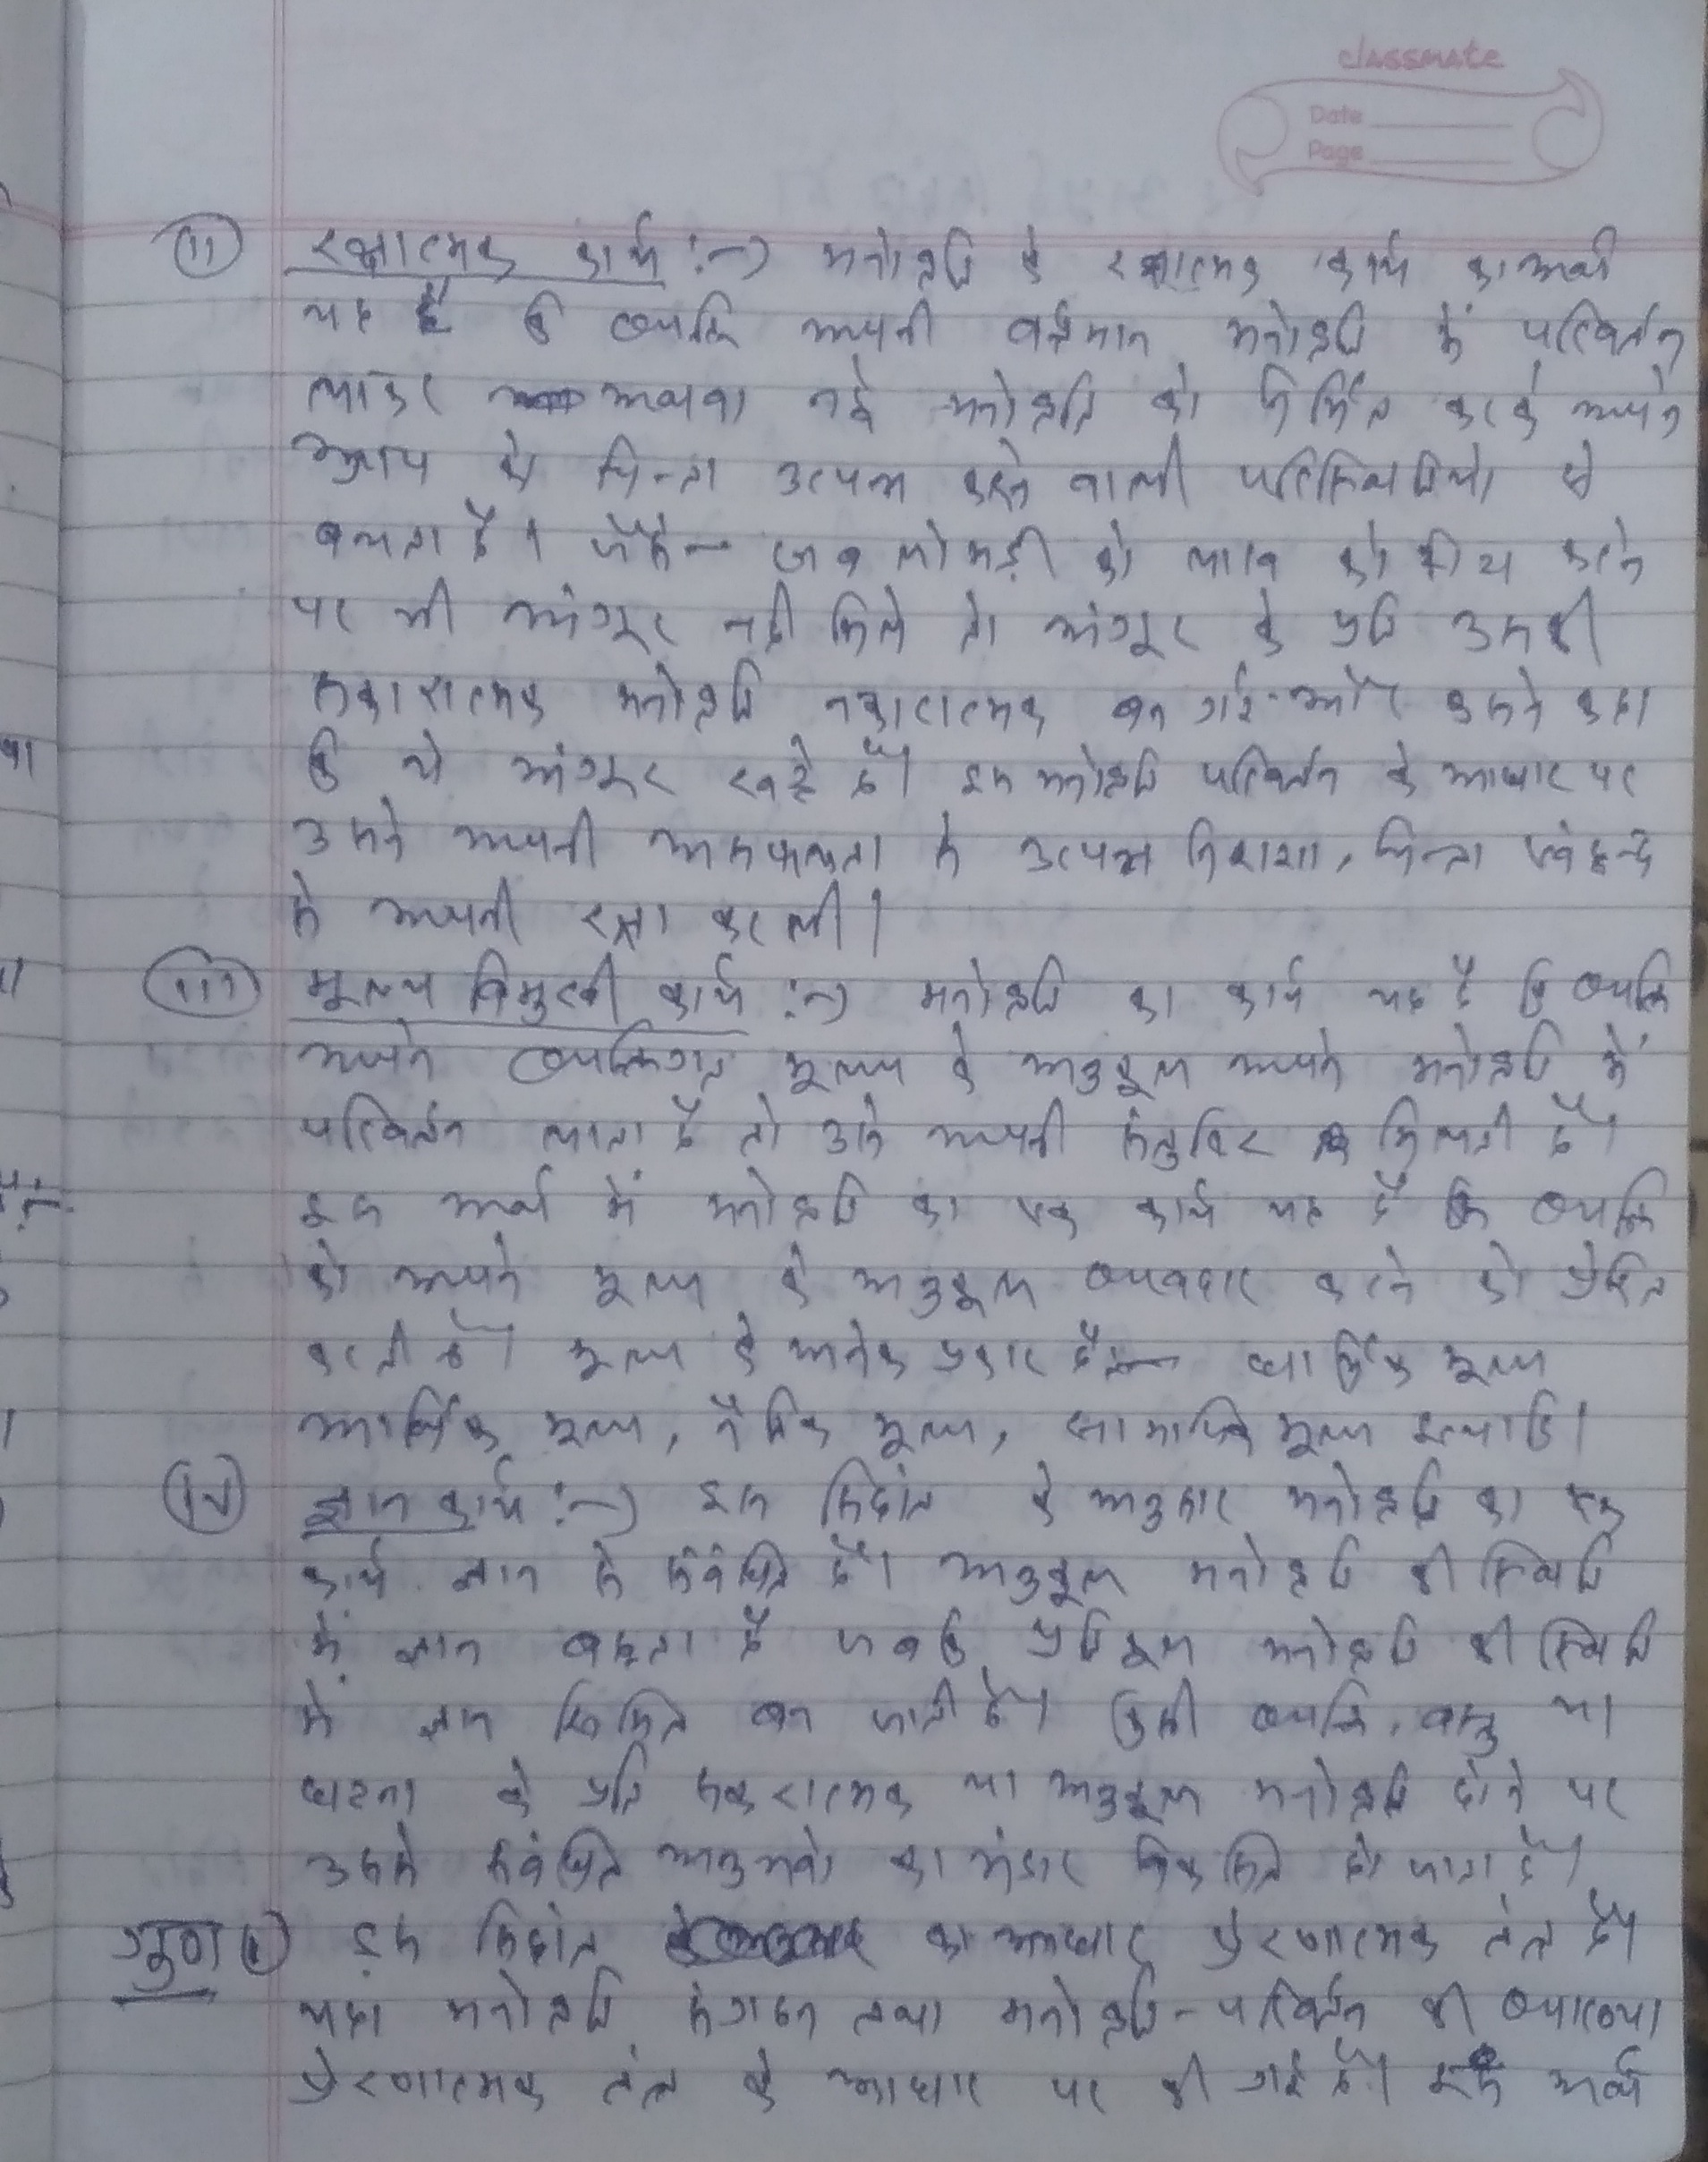 classmate
Date
Page
(ii) रक्षात्मक कार्य :-> मनोवृति के रक्षात्मक कार्य का अर्थ
यह है कि व्यक्ति अपनी वर्तमान मनोवृति में परिवर्तन
लाकर अथवा नई मनोवृति को निर्मित करके अपने
आप को चिन्ता उत्पन्न करने वाली परिस्थितियो से
बचाता है। जैसे- जब लोमड़ी को लाख कोशिश करने
पर भी अंगूर नही मिले तो अंगूर के प्रति उसकी
सकारात्मक मनोवृति नकारात्मक बन गई और उसने कहा
कि ये अंगूर खट्टे है। इस मनोवृति परिवर्तन के आधार पर
उसने अपनी असफलता से उत्पन्न निराशा, चिन्ता एवं द्वन्द
से अपनी रक्षा कर ली।
(iii) मूल्य विमुखी कार्य :-> मनोवृति का कार्य यह है कि व्यक्ति
अपने व्यक्तिगत मूल्य के अनुकूल अपने मनोवृति में
परिवर्तन लाता है तो उसे अपनी मिलती है।
इस अर्थ में मनोवृति का एक कार्य यह है कि व्यक्ति
को अपने मूल्य के अनुकूल व्यवहार करने को प्रेरित
करती है। मूल्य के अनेक प्रकार है- धार्मिक मूल्य
आर्थिक मूल्य, नैतिक मूल्य, सामाजिक मूल्य इत्यादि।
(iv) ज्ञान कार्य :-> इस सिद्दांत के अनुसार मनोवृति का एक
कार्य ज्ञान से संबंधित है। अनुकूल मनोवृति की स्थिति
में ज्ञान बढ़ता है जबकि प्रतिकूल मनोवृति की स्थिति
में ज्ञान बन जाती है। किसी व्यक्ति, वस्तु या
घटना के प्रति सकरात्मक या अनुकूल मनोवृति होने पर
उससे संबंधित अनुभवो का भंडार विकसित हो जाता है।
गुण (i) इस सिद्दांत का आधार प्रेरणात्मक तंत्र है।
यहा मनोवृति संगठन तथा मनोवृति-परिवर्तन की व्याख्या
प्रेरणात्मक तंत्र के आधार पर की गई है। इस अर्थ